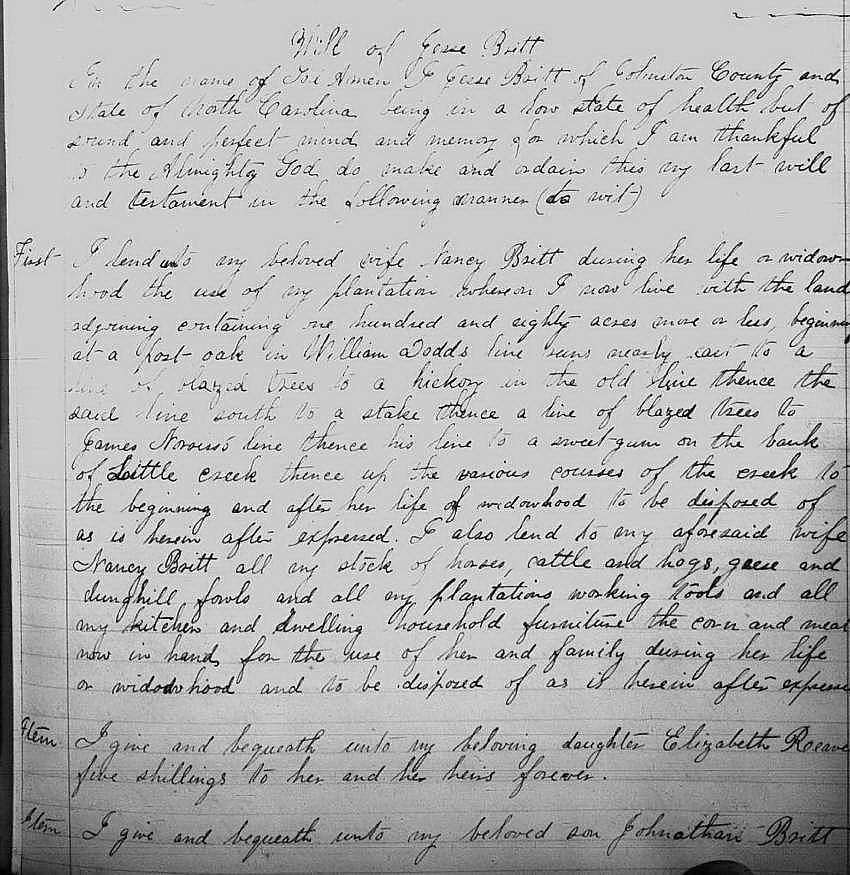 Will of Jesse Britt
In the name of God Amen I Jesse Britt of Johnston County and
State of North Carolina being in a low state of health but of
sound and perfect mind and memory for which I am thankful
to the Almighty God do make and ordain this my last will
and testament in the following manner (to wit)
First I lend unto my beloved wife Nancy Britt during her life or widow
hood the use of my plantation whereon I now live with the land
adjoining containing one hundred and eighty acres more or less, beginning
at a post oak in William Dodds line runs nearly east to a
line of blazed trees to a hickory in the old line thence the
said line south to a stake thence a line of blazed trees to
James line thence his line to a sweet gum on the bank
of Little creek thence up the various courses of the creek to
the beginning and after her life of widowhood to be disposed of
as is herein after expressed. I also lend to my aforesaid wife
Nancy Britt all my stock of horses, cattle and hogs, geese and
dunghill fowls and all my plantations working tools and all
my kitchen and dwelling household furniture the corn and meat
now in hand for the use of her and family during her life
or widowhood and to be disposed of as is herein after express
Item I give and bequeath unto my beloving daughter Elizabeth
five shillings to her and her heirs forever.
Item I give and bequeath unto my beloved son Johnathan Britt